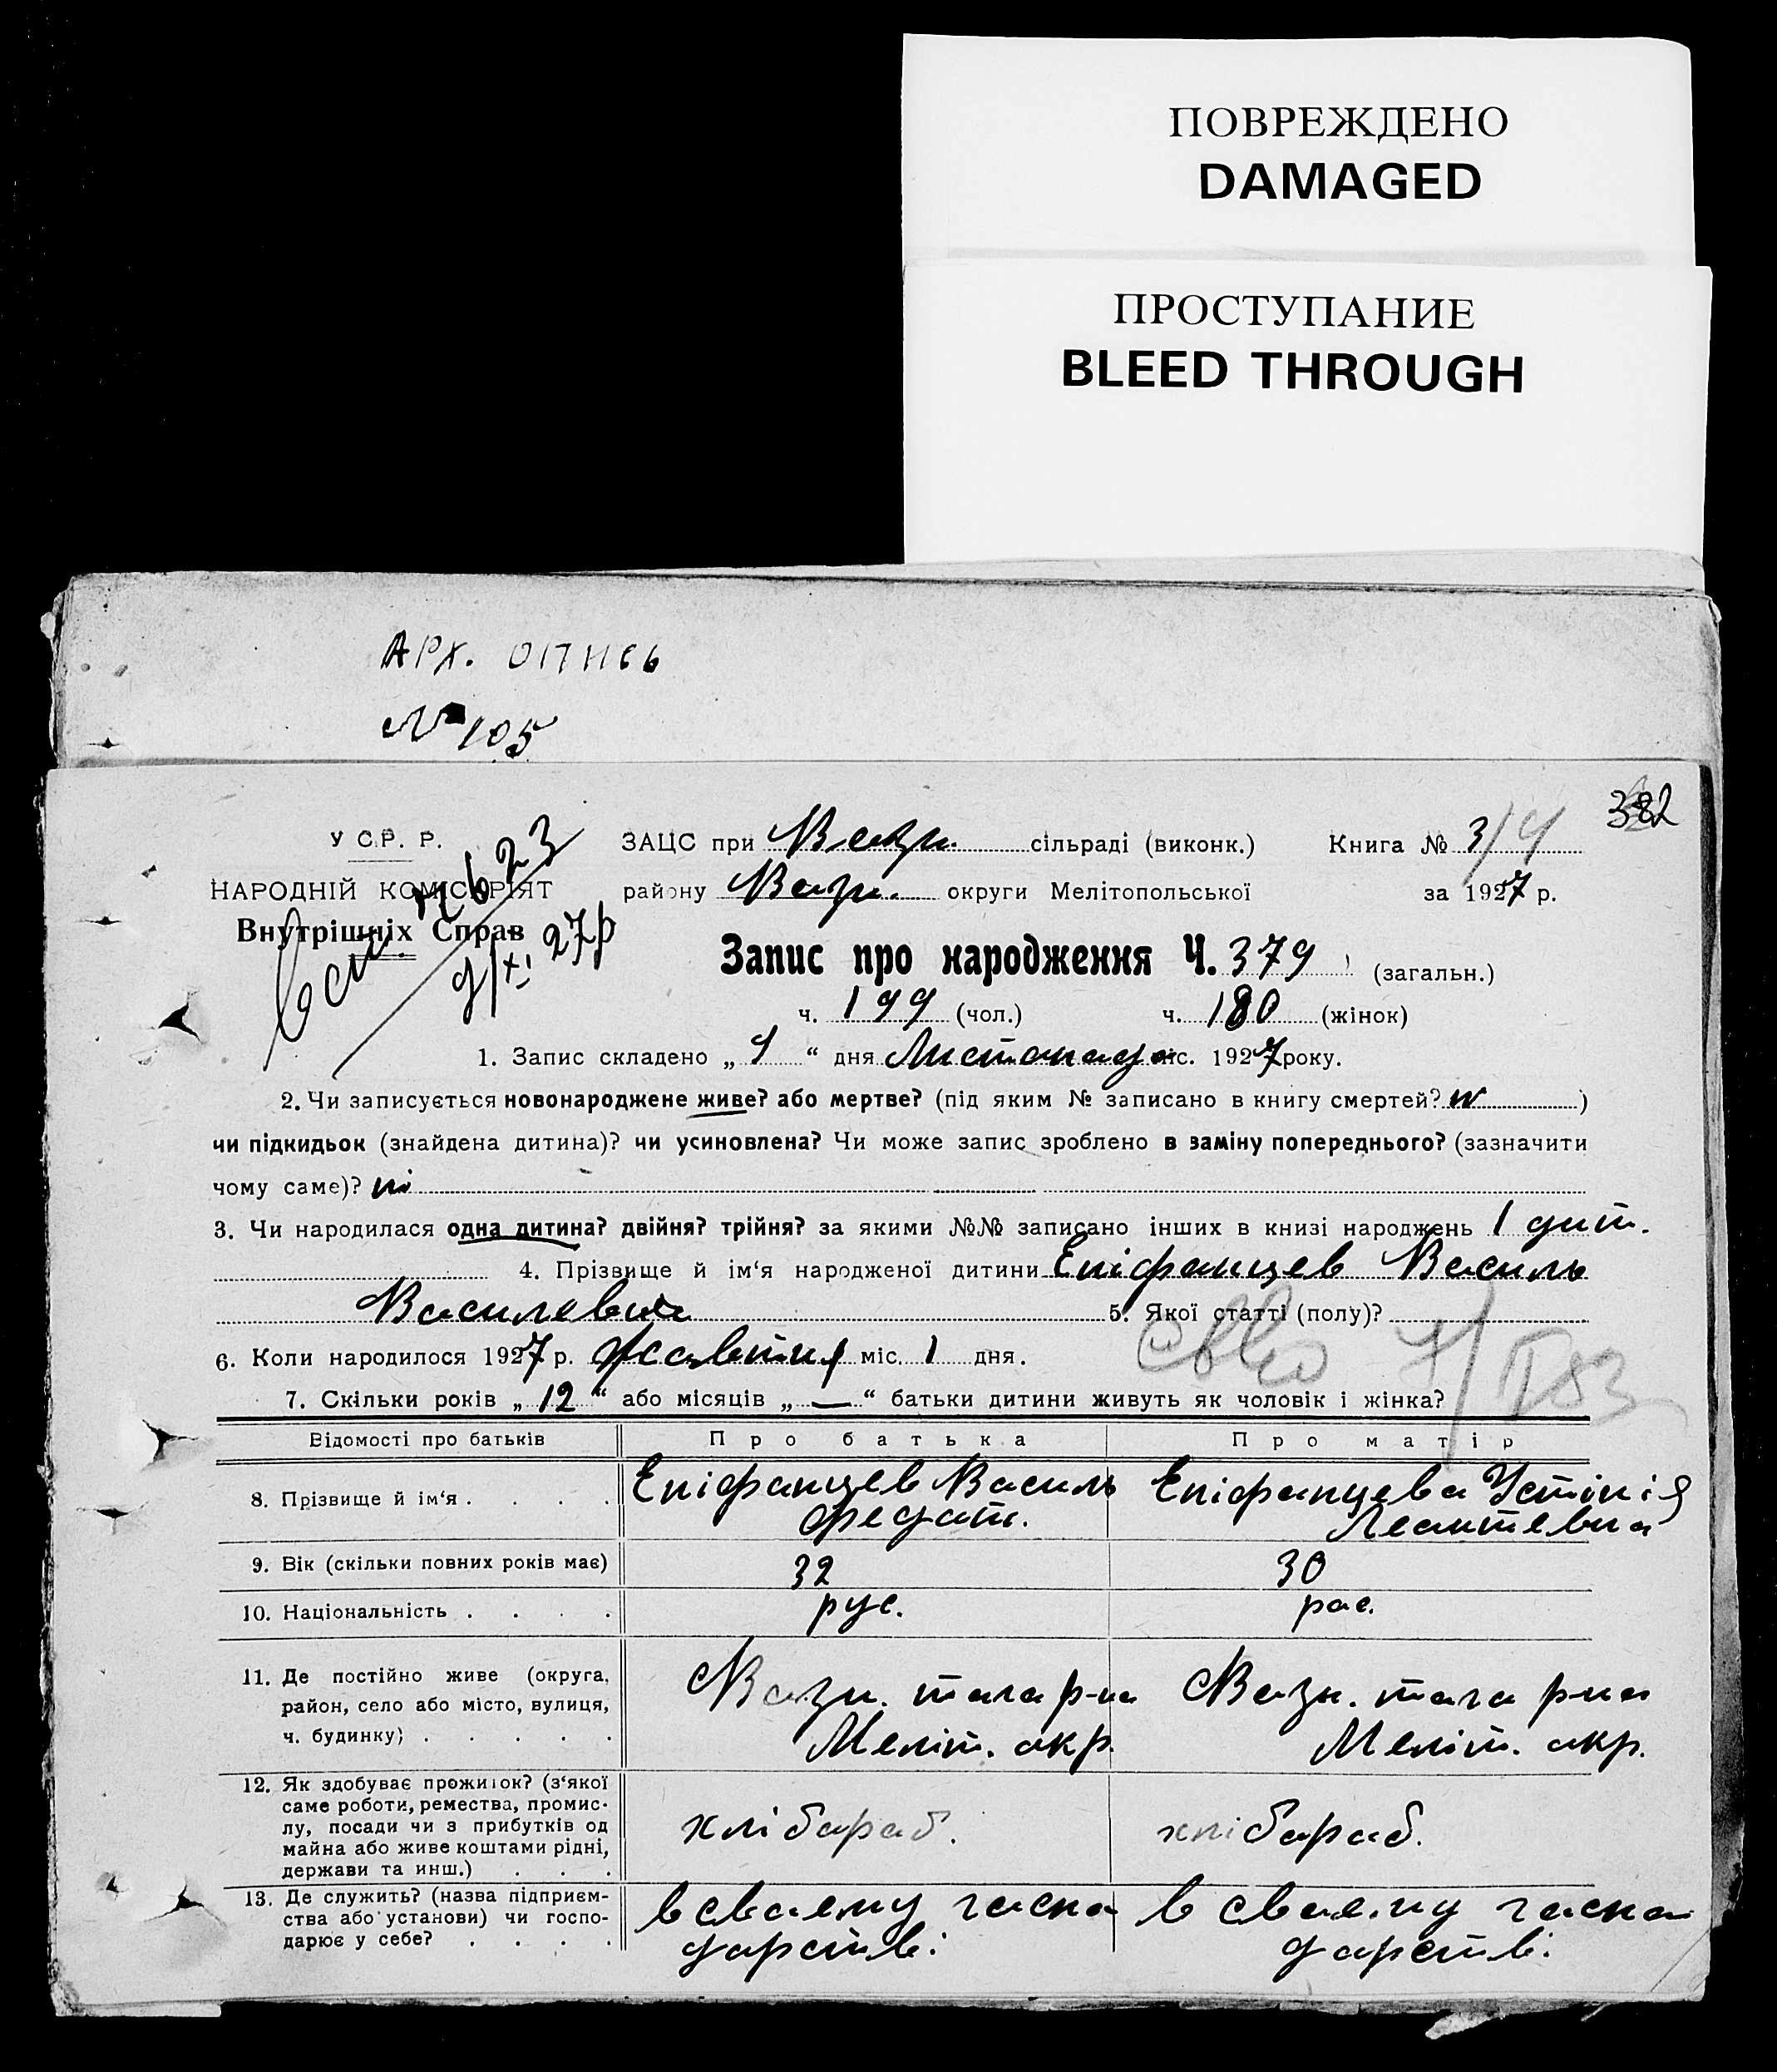 ПОВРЕЖДЕНО
DAMAGED
ПРОСТУПАНИЕ
BLEED THROUGH
АРХ. ОПИСЬ
№ 105
382
У С.Р. Р.
НАРОДНІЙ КОМІСАРІЯТ
Внутрішніх Справ
7623
9/XI 27р
ЗАЦС при Вазн. сільраді (виконк.) Книга № 3/4
району Вазн. округи Мелітопольської за 1927 р.
Запис про народження Ч. 379 (загальн.)
ч. 199 (чол.) ч. 180 (жінок)
1. Запис складено „ 4 “ дня Листопада міс. 1927 року.
2. Чи записується новонароджене живе? або мертве? (під яким № записано в книгу смертей? )
чи підкидьок (знайдена дитина)? чи усиновлена? Чи може запис зроблено в заміну попереднього? (зазначити
чому саме)? ні
3. Чи народилася одна дитина? двійня? трійня? за якими №№ записано інших в книзі народжень 1 дит.
4. Прізвище й ім‘я народженої дитини Епіфанцев Василь
Василевич 5. Якої статті (полу)?
6. Коли народилося 1927 р. Жавтня міс. 1 дня.
7. Скільки років „ 12 “ або місяців „ — “ батьки дитини живуть як чоловік і жінка?
Відомості про батьків Про батька Про матір
8. Прізвище й ім‘я . . . . Епіфанцев Василь Епіфанцева Устінія
Федот. Леонтевна
9. Вік (скільки повних років має) 32 30
10. Національність . . . . рус. рос.
11. Де постійно живе (округа,
район, село або місто, вулиця, Вазн. тага р-на Вазн. тага р-на
ч. будинку) . . . . . Меліт. окр. Меліт. окр.
12. Як здобуває прожиток? (з‘якої
саме роботи, ремества, промис-
лу, посади чи з прибутків од хлібараб. хлібараб.
майна або живе коштами рідні,
держави та инш.) . . .
13. Де служить? (назва підприєм- в сваему гаспа в сваему гаспа
ства або установи) чи госпо-
дарює у себе? . . . . дарстві. дарстві.